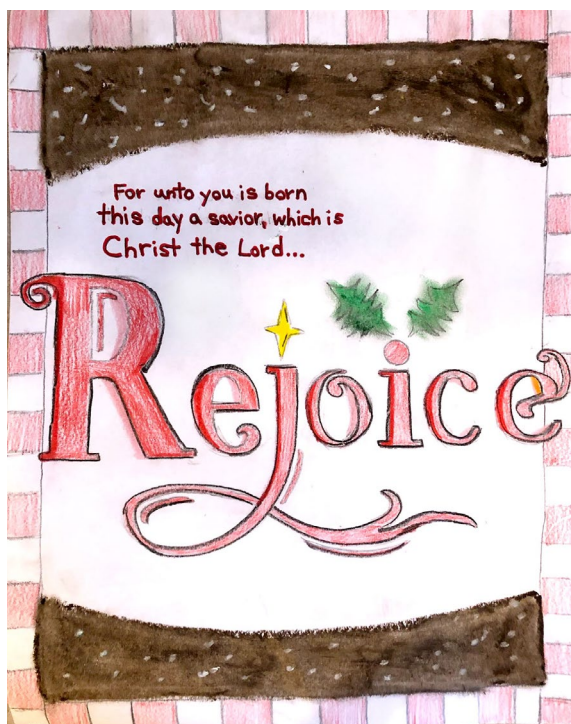 For unto you is born
this day a savior, which is
Christ the Lord...
Rejoice